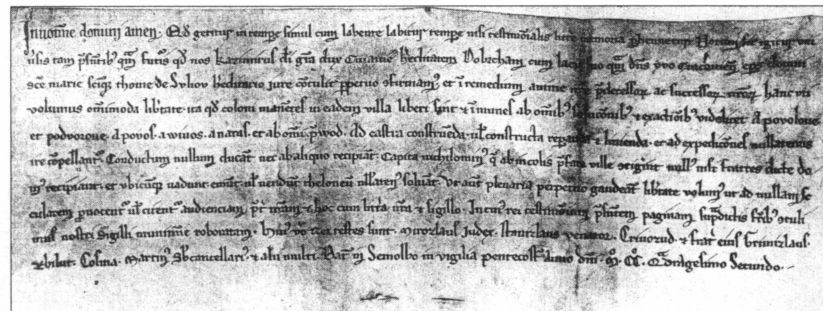 In nomine domini amen. Qd geritur in tempe simul cum labente labitur tempe nisi testimonialis littere memoria phennetur. Notum sit igitur uni
uisis tam psentibz qm futuris qd nos Kazimirus di gra dux Cuiauie heditatem Dobecham cum lacu quam dns yuo Cracouiensis eps domui
sce marie scique thome de Suhov heditario jure contulit ppetuo confirmam et in remedium anime nre pdecessor ac successor nror hanc uti
uolumus omimoda libtate ita qd coloni manentes in eadem uilla liberi sint et inmunes ab omibz solucionibz et exactionibz uidelicet. A povoloue
et podvoroue. a povoz. a naraz. et ab omi pwod. Ad castra construenda ul constructa reparanda et munienda et ad expediciones nullatenus
ire compellantur. Conductum nullum ducant nec ab aliquo recipiant. Capita nichilominus que ab incolis pfate uille exigunt nullus nisi fratres dicte do
mus recipiant. et ubicumque uadunt emunt ul uendunt theloneum nullatenus soluant. Ut aut plenaria perpetuo gaudeant libtate uolumus ut ad nullam se
cularem prouocentur ul citentur audienciam, preter nram et hoc cum littera nra et sigillo. In cuius rei testimonium psentem paginam supdictis fratribz contuli
mus nostri sigilli munimine roboratam. huius rei testes sunt. Mirozlaus Judex. Stanizlaus uenator. frater eius
Cosma. Martinus Subcancellarius. et alii multi. Datum in Semolbo in uigilia pentecostes Anno dni. M. CC. Quadragesimo Secundo.